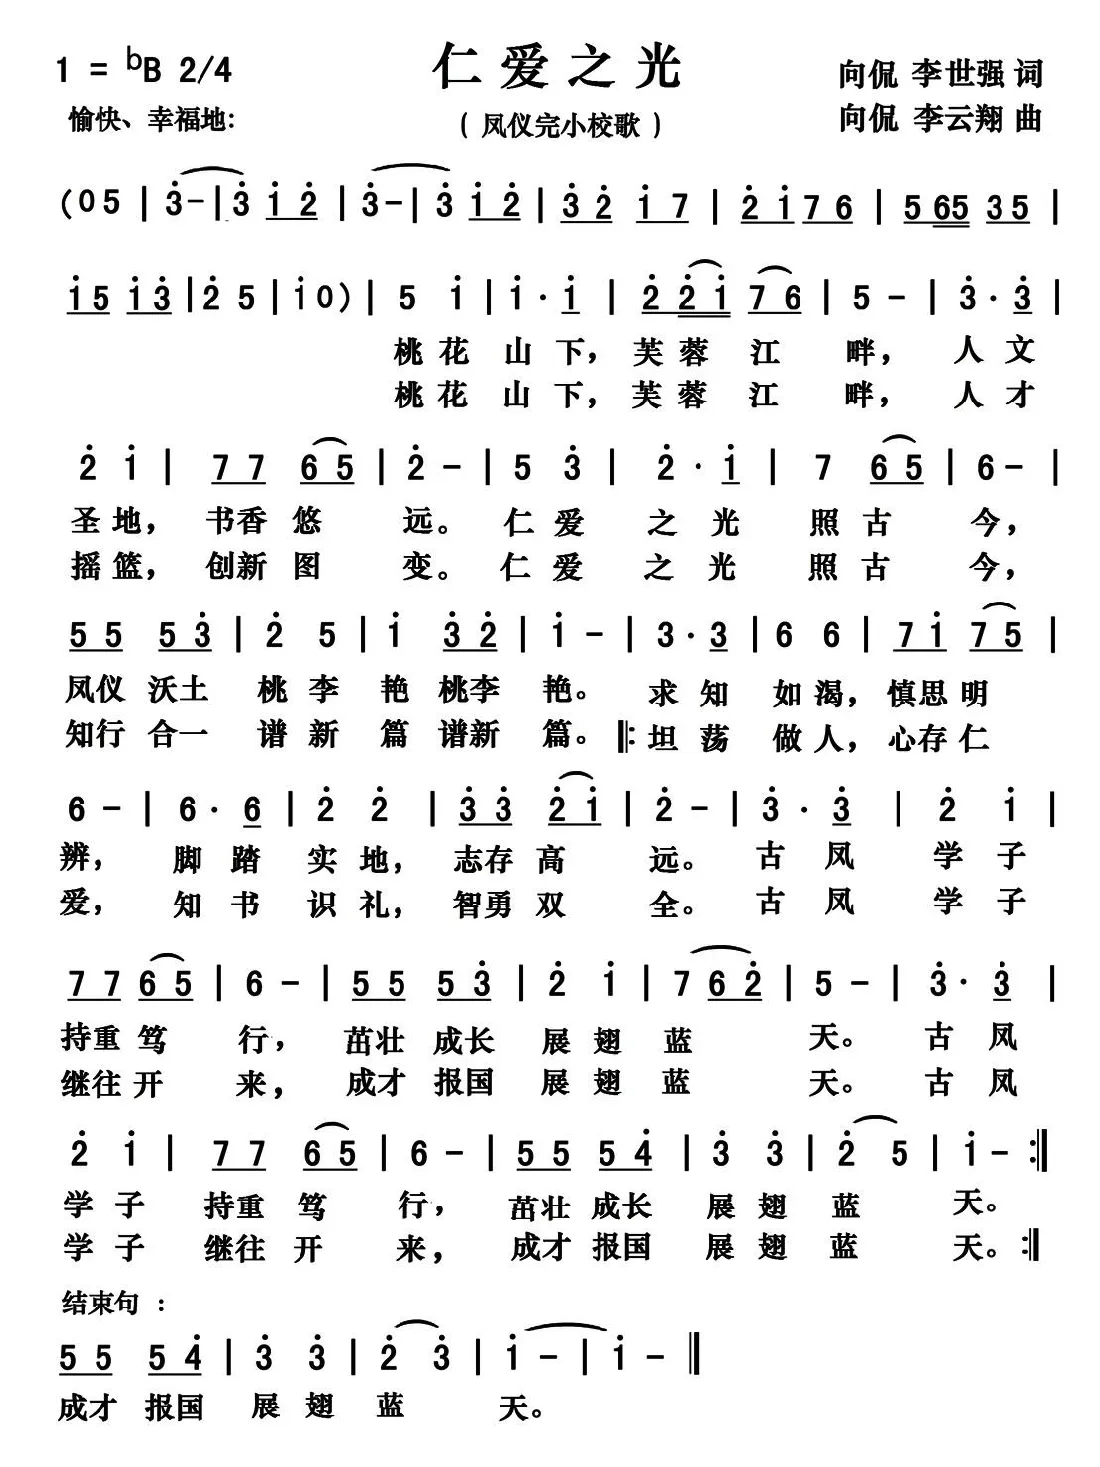 1 = ᵇB 2/4 仁爱之光 向侃 李世强 词
愉快、幸福地: ( 凤仪完小校歌 ) 向侃 李云翔 曲
(0 5 | 3̇ - | 3̇ 1̇ 2̇ | 3̇ - | 3̇ 1̇ 2̇ | 3̇ 2̇ 1̇ 7 | 2̇ 1̇ 7 6 | 5 65 3 5 |
1̇ 5 1̇ 3̇ | 2̇ 5 | 1̇ 0) | 5 1̇ | 1̇ · 1̇ | 2̇ 2̇ 1̇ 7 6 | 5 - | 3̇ · 3̇ |
桃花 山下，芙蓉 江 畔，人文
桃花 山下，芙蓉 江 畔，人才
2̇ 1̇ | 7 7 6 5 | 2̇ - | 5 3̇ | 2̇ · 1̇ | 7 6 5 | 6 - |
圣地，书香 悠 远。仁爱 之光 照古 今，
摇篮，创新 图 变。仁爱 之光 照古 今，
5 5 5 3̇ | 2̇ 5 | 1̇ 3̇ 2̇ | 1̇ - | 3 · 3 | 6 6 | 7 1̇ 7 5 |
凤仪 沃土 桃李 艳 桃李 艳。 求知 如渴，慎思 明
知行 合一 谱新 篇 谱新 篇。‖: 坦荡 做人，心存 仁
6 - | 6 · 6 | 2̇ 2̇ | 3̇ 3̇ 2̇ 1̇ | 2̇ - | 3̇ · 3̇ | 2̇ 1̇ |
辨，脚踏 实地，志存 高 远。古凤 学子
爱，知书 识礼，智勇 双 全。古凤 学子
7 7 6 5 | 6 - | 5 5 5 3̇ | 2̇ 1̇ | 7 6 2̇ | 5 - | 3̇ · 3̇ |
持重 笃 行，茁壮 成长 展翅 蓝 天。古凤
继往 开 来，成才 报国 展翅 蓝 天。古凤
2̇ 1̇ | 7 7 6 5 | 6 - | 5 5 5 4̇ | 3̇ 3̇ | 2̇ 5 | 1̇ - :‖
学子 持重 笃 行，茁壮 成长 展翅 蓝 天。
学子 继往 开 来，成才 报国 展翅 蓝 天。:‖
结束句 :
5 5 5 4̇ | 3̇ 3̇ | 2̇ 3̇ | 1̇ - | 1̇ - ‖
成才 报国 展翅 蓝 天。